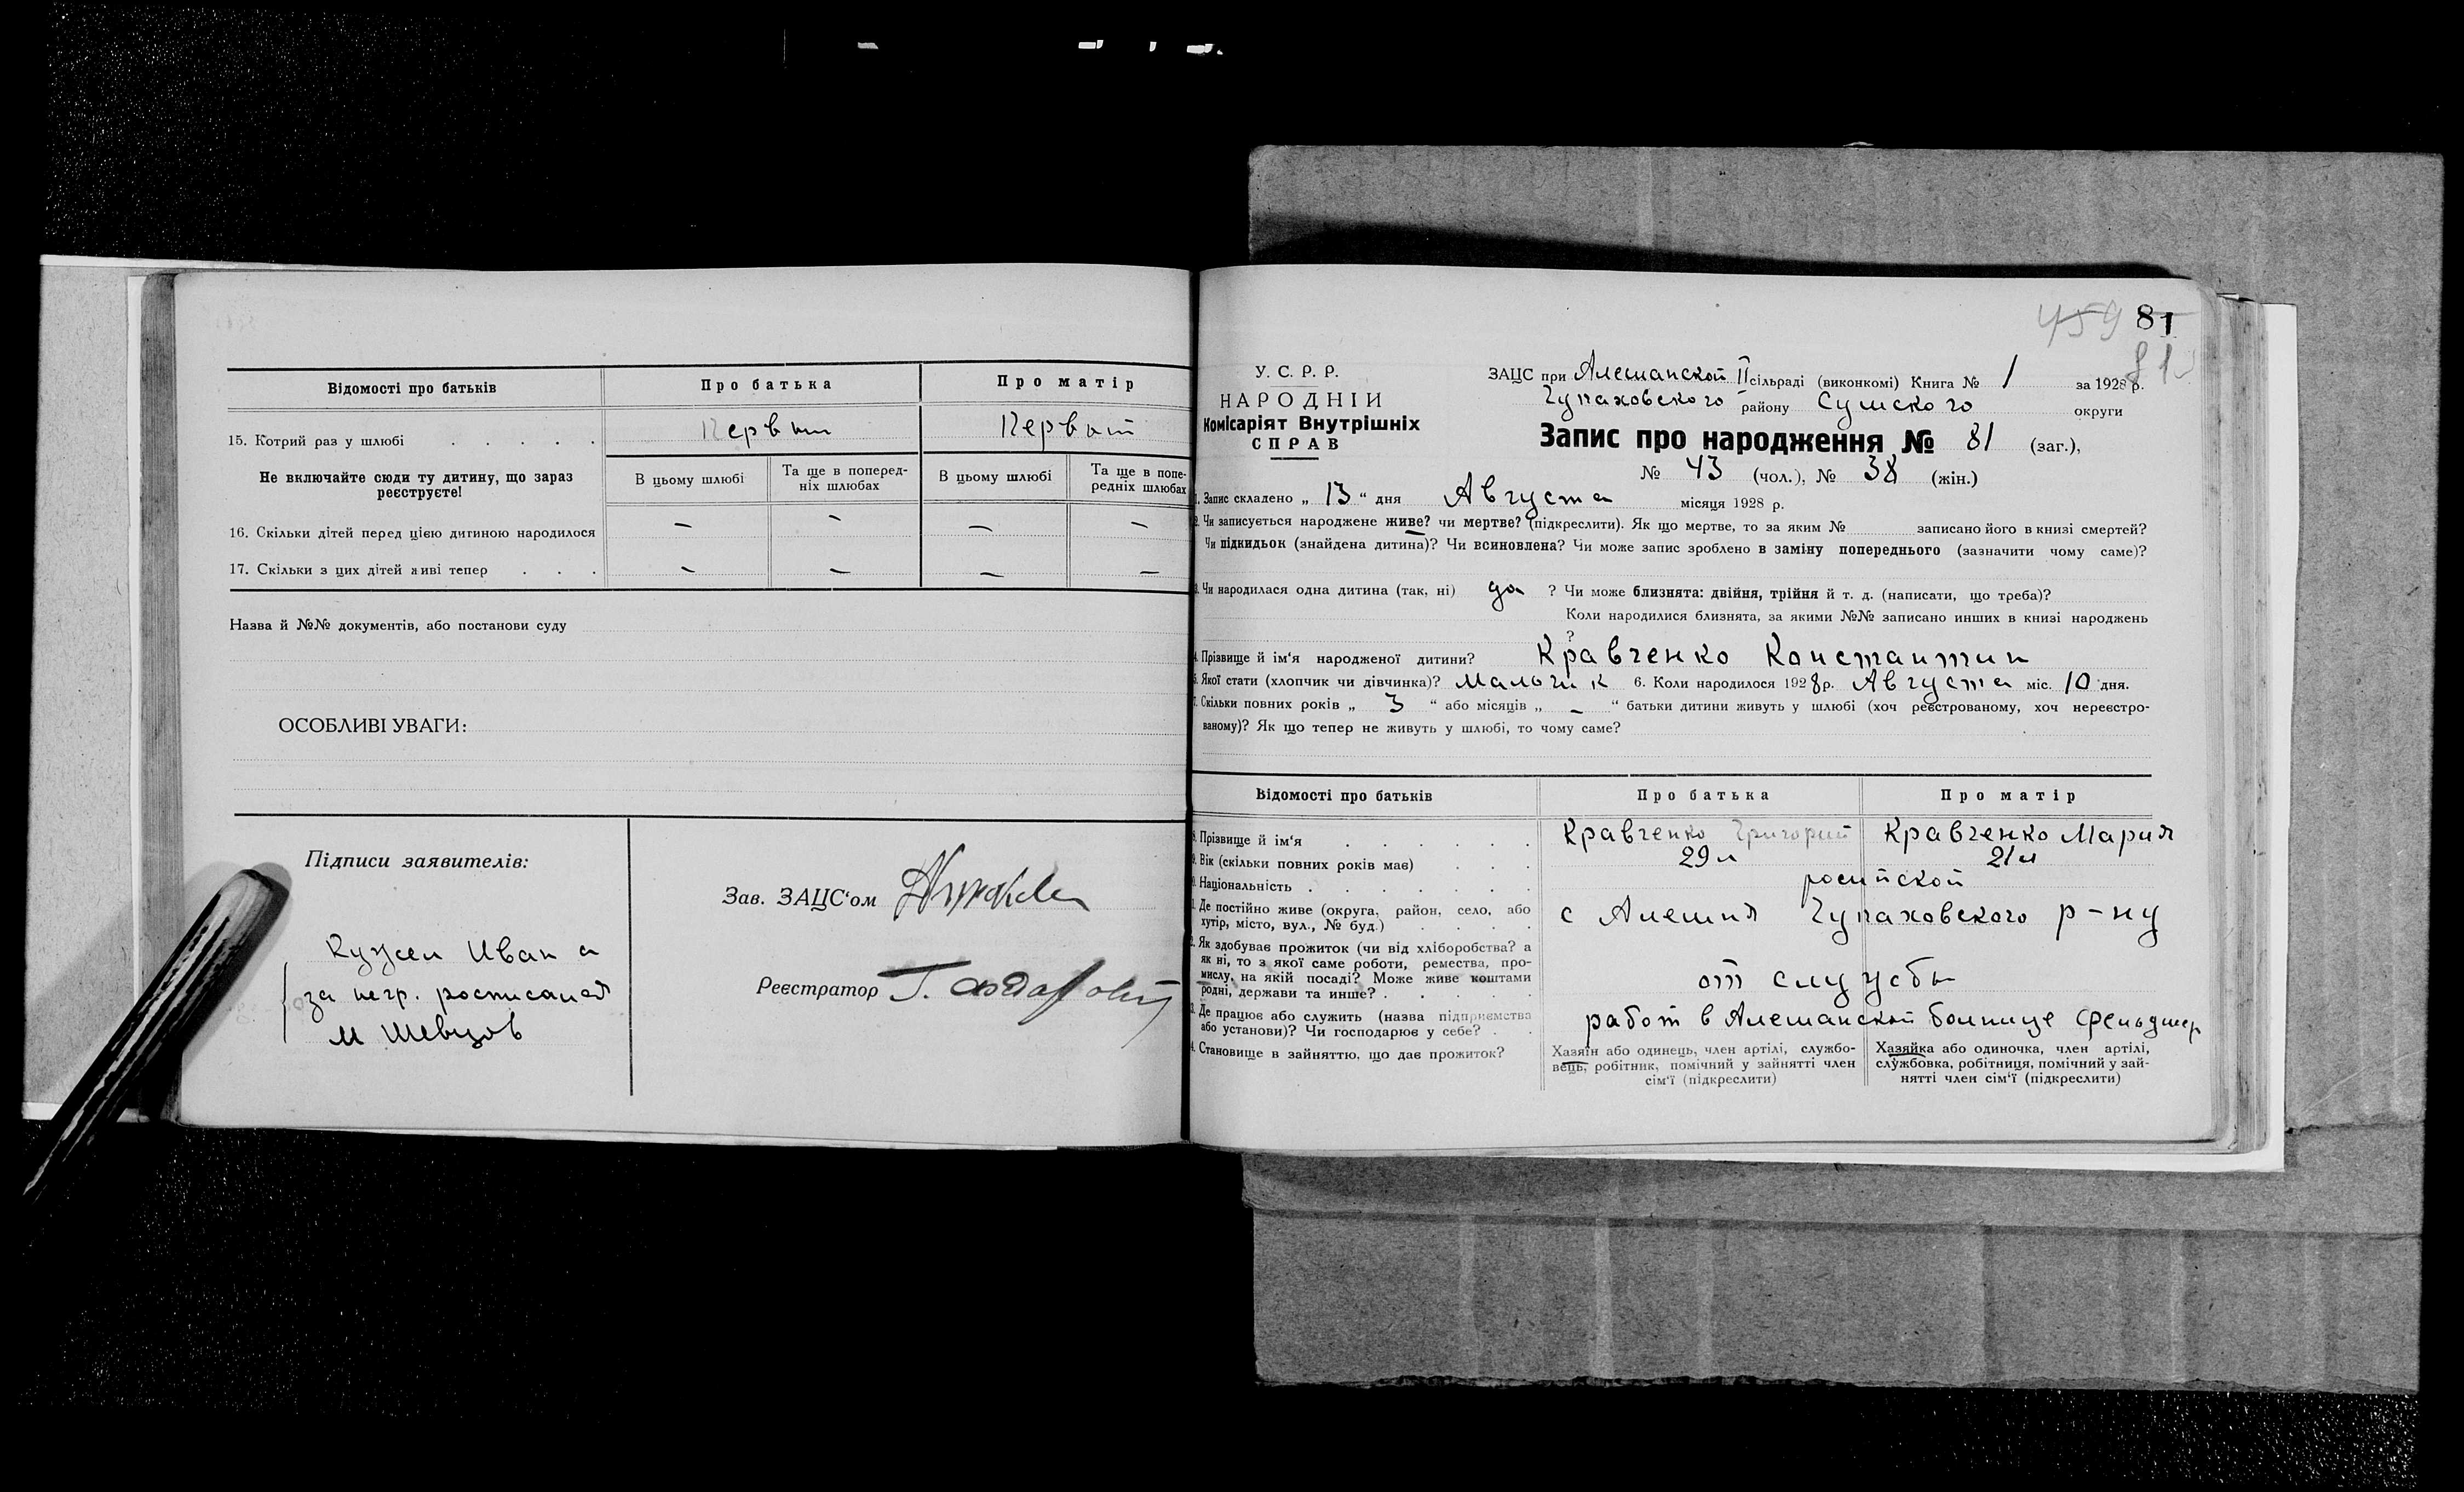 Відомості про батьків
Про батька
Про матір
15. Котрий раз у шлюбі . . . . .
Первый
Первый
Не включайте сюди ту дитину, що зараз реєструєте!
В цьому шлюбі
Та ще в попередніх шлюбах
В цьому шлюбі
Та ще в попередніх шлюбах
16. Скільки дітей перед цією дитиною народилося
– – – –
17. Скільки з цих дітей живі тепер . . .
– – – –
Назва й №№ документів, або постанови суду
ОСОБЛИВІ УВАГИ:
Підписи заявителів:
Иван а
за негр. росписался
М Шевцов
Зав. ЗАЦС‘ом
Реєстратор
459 81
81
У. С. Р. Р.
НАРОДНІЙ
Комісаріят Внутрішніх
СПРАВ
ЗАЦС при Алешанской II сільраді (виконкомі) Книга № 1 за 1928 р.
Чупаховского району Сумского округи
Запис про народження № 81 (заг.),
№ 43 (чол.), № 38 (жін.)
1. Запис складено „ 13 “ дня Августа місяця 1928 р.
2. Чи записується народжене живе? чи мертве? (підкреслити). Як що мертве, то за яким № записано його в книзі смертей?
Чи підкидьок (знайдена дитина)? Чи всиновлена? Чи може запис зроблено в заміну попереднього (зазначити чому саме)?
3. Чи народилася одна дитина (так, ні) да ? Чи може близнята: двійня, трійня й т. д. (написати, що треба)?
Коли народилися близнята, за якими №№ записано инших в книзі народжень
?
4. Прізвище й ім‘я народженої дитини? Кравченко Константин
5. Якої стати (хлопчик чи дівчинка)? Мальчик 6. Коли народилося 1928 р. Августа міс. 10 дня.
7. Скільки повних років „ 3 “ або місяців „ – “ батьки дитини живуть у шлюбі (хоч реєстрованому, хоч нереєстро-
ваному)? Як що тепер не живуть у шлюбі, то чому саме?
Відомості про батьків
Про батька
Про матір
8. Прізвище й ім‘я . . . . . .
Кравченко Григорий
Кравченко Мария
9. Вік (скільки повних років має) . . .
29 л
21 л
10. Національність . . . . . . .
росийской
11. Де постійно живе (округа, район, село, або
хутір, місто, вул., № буд.) . . . .
с Алешня Чупаховского р-ну
12. Як здобуває прожиток (чи від хліборобства? а
як ні, то з якої саме роботи, ремества, про-
мислу, на якій посаді? Може живе коштами
родні, держави та инше? . . . . .
от службы
13. Де працює або служить (назва підприємства
або установи)? Чи господарює у себе? . .
работ в Алешанской болнице
14. Становище в зайняттю, що дає прожиток?
Хазяїн або одинець, член артілі, службо-
вець, робітник, помічний у зайнятті член
сім‘ї (підкреслити)
Хазяйка або одиночка, член артілі,
службовка, робітниця, помічний у зай-
нятті член сім‘ї (підкреслити)